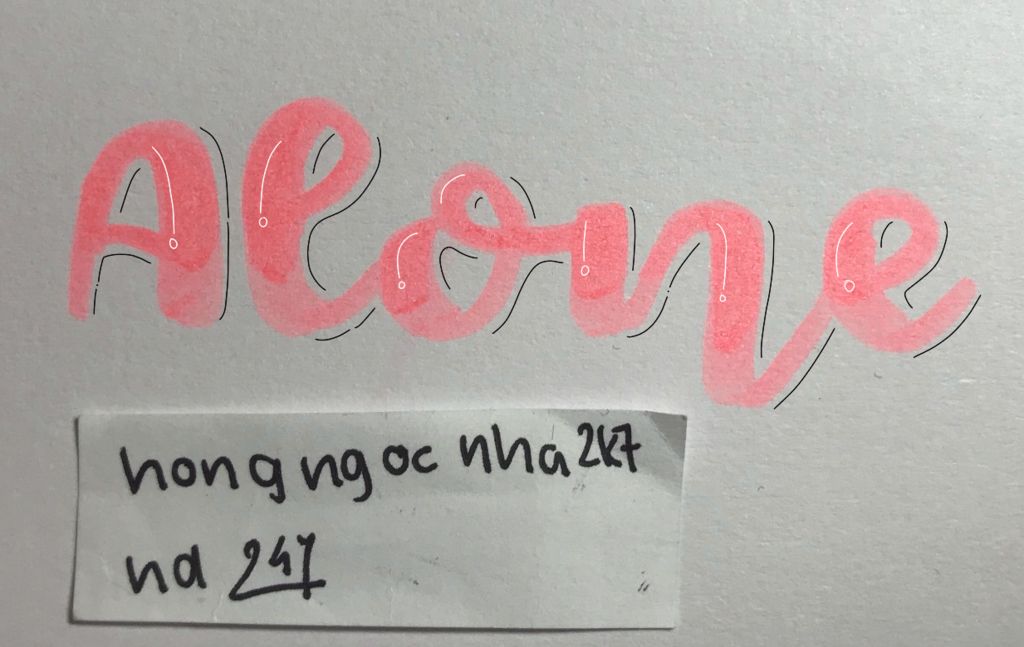 Alone
hong ngoc nha 2k7
nd 247